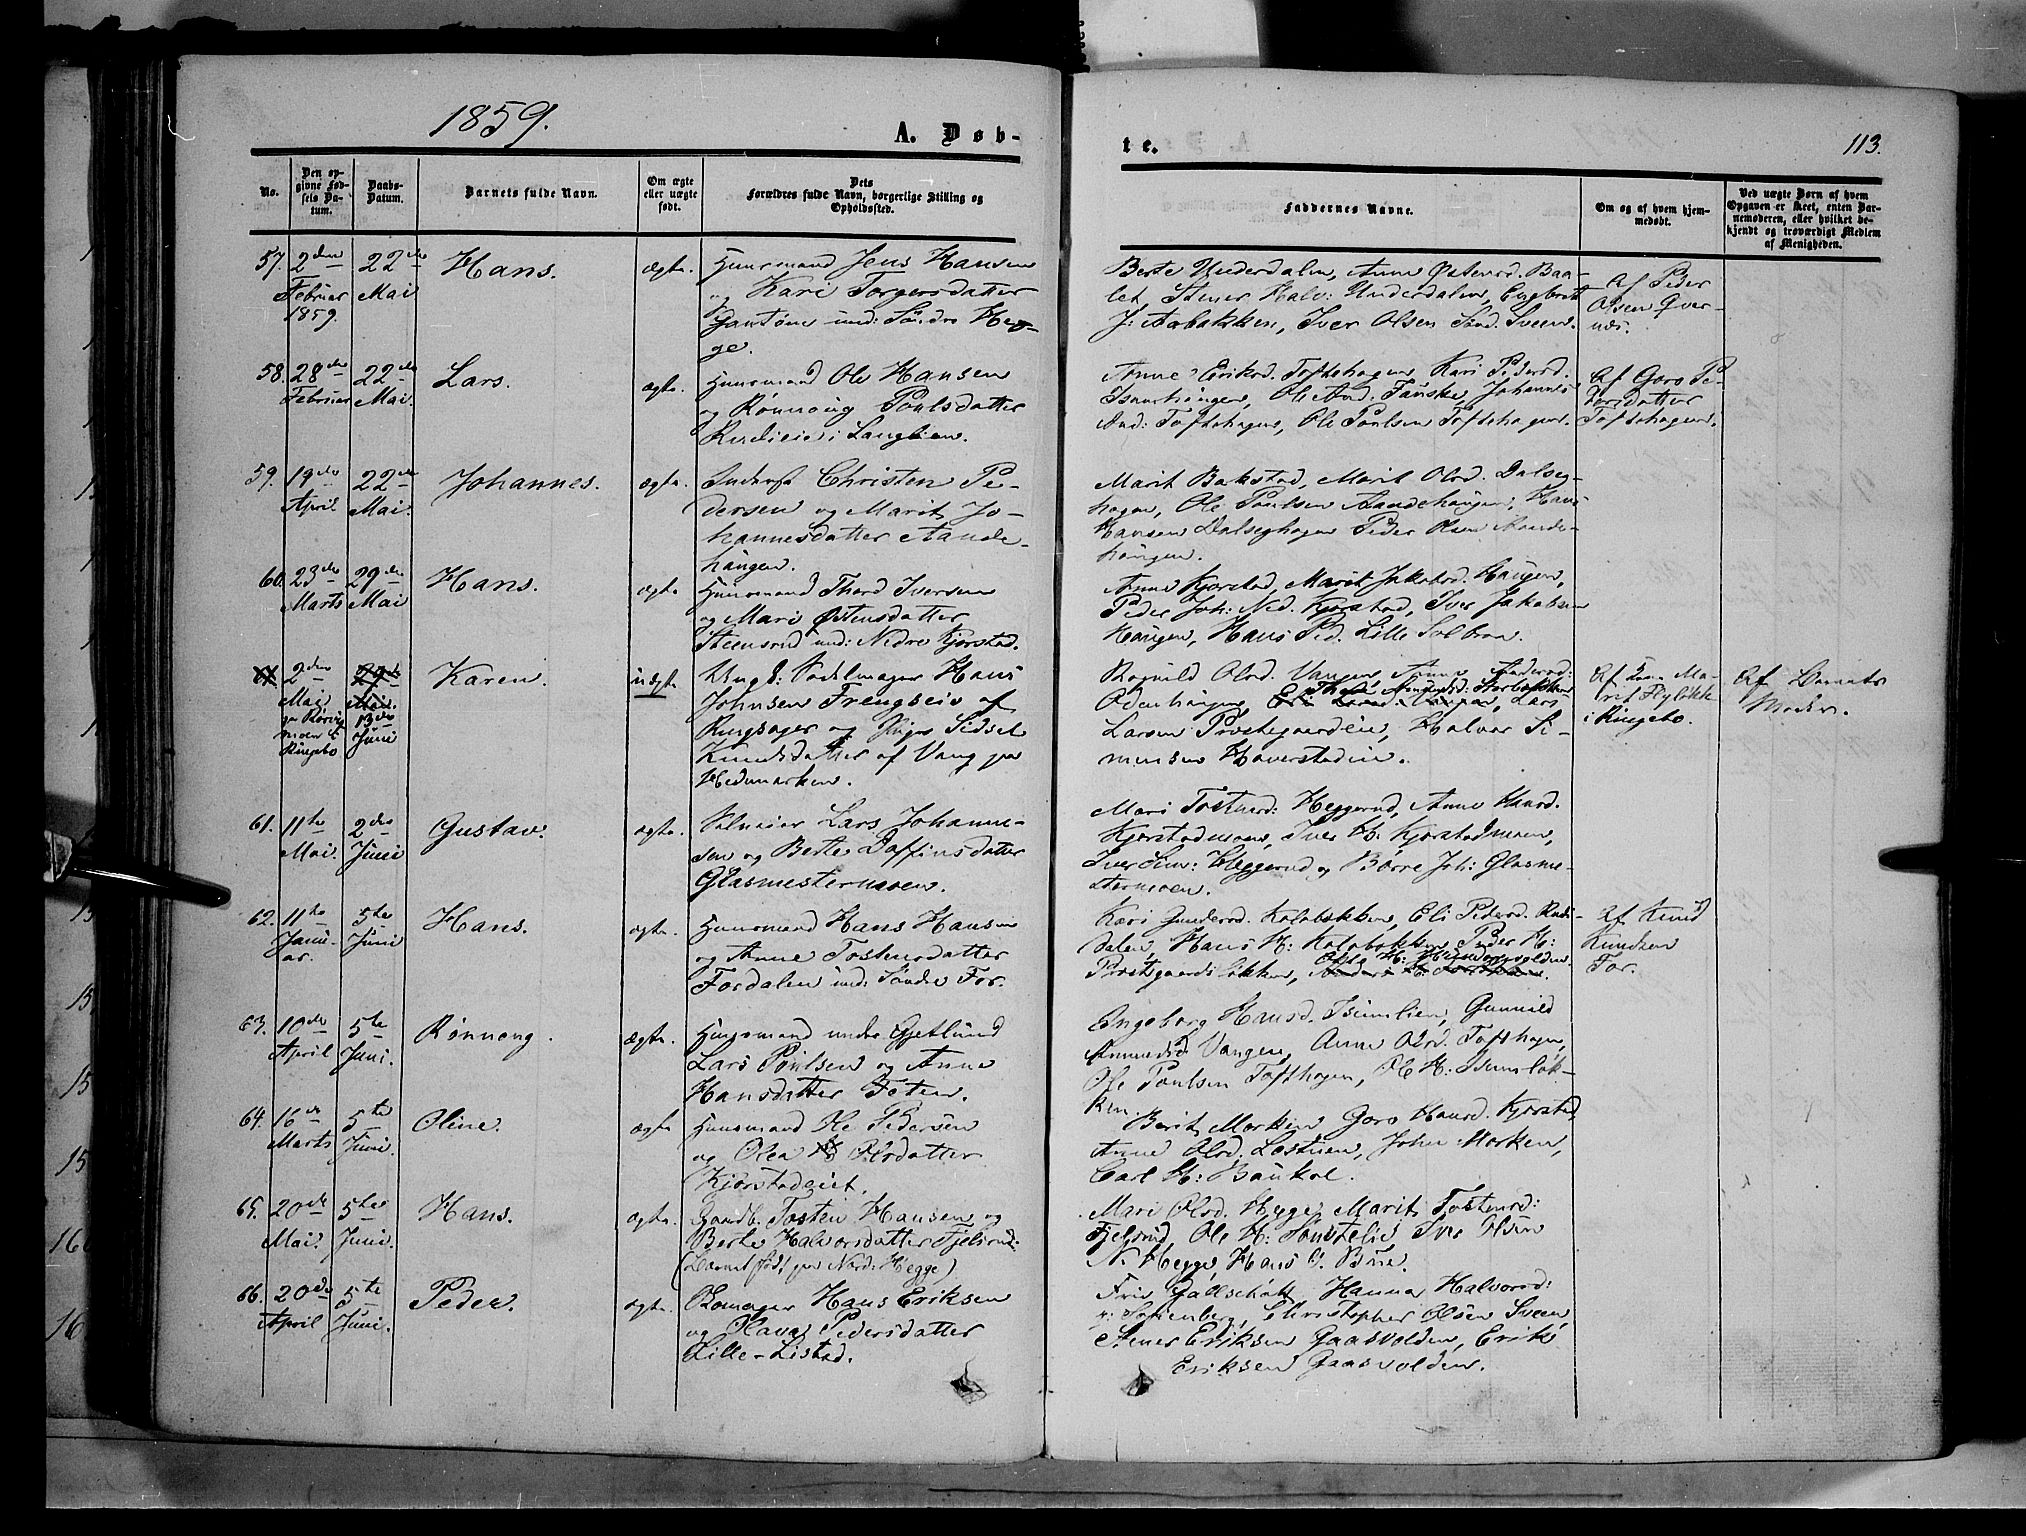 1859.
A. Døb-
te.
113.
No.
Den op-
givne Fød-
sels Da-
tum.
Daabs-
Datum.
Barnets fulde Navn.
Om ægte
eller uægte
født.
Dets
Forældres fulde Navn, borgerlige Stilling og
Opholdssted.
Faddernes Navne.
Om og af hvem hjem-
medøbt.
Ved uægte Børn af hvem
Opgaven er skeet, enten Bar-
nemoderen, eller hvilket be-
kjendt og troværdigt Medlem
af Menigheden.
57. 2den
Februar
1859.
22de
Mai
Hans.
ægte.
Huusmand Jens Hansen
og Kari Torgersdatter
und: Søndre Heg-
ge.
Berte Underdalen, Anne Østensd. Baa-
let, Stener Halv: Underdalen, Engbret
J: Aabakken, Iver Olsen Sønd. Sveen.
Af Peder
Olsen Qver-
næs.
58. 28de
Februar
22de
Mai.
Lars.
ægte.
Huusmand Ole Hansen
og Rønnoug Poulsdatter
i Langlien.
Anne Eriksd. Toftehagen, Kari Pedersd.
Ole And. Fauske, Johannes
And: Toftehagen, Ole Poulsen Toftehagen.
Af Goro Pe-
dersdatter
Toftehagen.
59. 19de
April
22de
Mai.
Johannes.
ægte.
Inderst Christen Pe-
dersen og Marit Jo-
hannesdatter Aande-
haugen.
Marit Bakstad, Marit Olsd. Dalseg-
hagen, Ole Poulsen Aandehaugen, Hans
Hansen Dalseghagen Peder Olsen Aande-
haugen.
60. 23de
Marts
29de
Mai
Hans.
ægte
Huusmand Thord Iversen
og Mari Østensdatter
Steensrud und: Nedre Kjorstad.
Anne Kjorstad, Marit Jakobsd. Haugen,
Peder Joh: Ned. Kjorstad, Iver Jakobsen
Haugen, Hans Ped. Lille Solbraa.
2den
Mai
paa
i
Ringebo
29de
Mai.
13de
Juni
Karen.
uægte
Ungk: Sadelmager Hans
Johnsen Frengseie af
Ringsager og Pige Sidsel
Knudsdatter af Vang paa
Hedemarken.
Ragnild Olsd. Vangen, Anne Andersd:
Odenhaugen, Lars
Larsen Prestegaardseie, Halvor Si-
mensen Haverstadeie.
Af Ma-
rit Flyløkke
i Ringebo.
Af Barnets
Moder.
61. 11te
Mai.
2den
Juni
Gustav.
ægte.
Selveier Lars Johanne-
sen og Berte Daffinsdatter
Glasmestermoen.
Mari Tostensd: Heggerud, Anne Hansd.
Kjorstadmoen, Iver H: Kjorstadmoen,
Iver Sim: Heggerud og Børre Joh: Glasme-
stermoen.
62. 11te
Janu-
ar.
5te
Juni
Hans.
ægte.
Huusmand Hans Hansen
og Anne Tostensdatter
Fordalen und: Søndre For.
Kari Gundersd. Kolobakken, Eli Pedersd. Rudi-
dalen, Hans H: Kolobakken Peder H:
Prestgaardsløkken,
Af Knud
Knudsen
For.
63. 10de
April
5te
Juni.
Rønnoug.
ægte.
Huusmand under Gjetlund
Lars Poulsen og Anne
Hansdatter Feten.
Ingeborg Hansd. Isumlien, Gunnild
Amundsd Vangen, Anne Olsd. Tofthagen,
Ole Poulsen Tofthagen, Ol H: Isumløk-
ken.
64. 16de
Marts
5te
Juni.
Oline.
ægte
Huusmand Ole Pedersen
og Olea Olsdatter
Kjorstadeiet.
Berit Morken Goro Hansd. Kjorstad
Anne Olsd. Lostuen, John Morken,
Carl H: Baukol.
65. 20de
Mai.
5te
Juni.
Hans.
ægte.
Gaardb. Tosten Hansen og
Berte Halvorsdatter Fjelsrud.
(Barnet født paa Nord: Hegge)
Mari Olsd. Hegge, Marit Tostensd:
Fjelsrud, Ole H: Sønstelie Iver Olsen
N. Hegge Hans O. Bue.
66. 20de
April
5te
Juni.
Peder.
ægte.
Skomager Hans Eriksen
og Olava Pedersdatter
Lille-Listad.
Hanna Halvorsd:
Christopher Olsen Sveen,
Stener Eriksen Gaasvolden, Erik
Eriksen Gaasvolden.